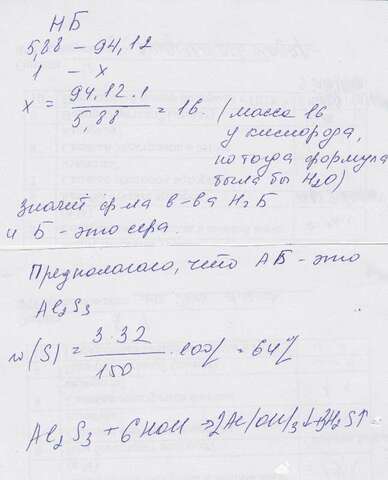 НБ
5,88 – 94,12
1 – х
х = 94,12·1 / 5,88 = 16. (масса 16
у кислорода,
но тогда формула
была бы H2O)
Значит ф-ла в-ва H2Б
и Б – это сера.
Предполагаю, что АБ – это
Al2S3
w(S) = 3·32 / 150 · 100% = 64%
Al2S3 + 6HOH → 2Al(OH)3↓ + 3H2S↑